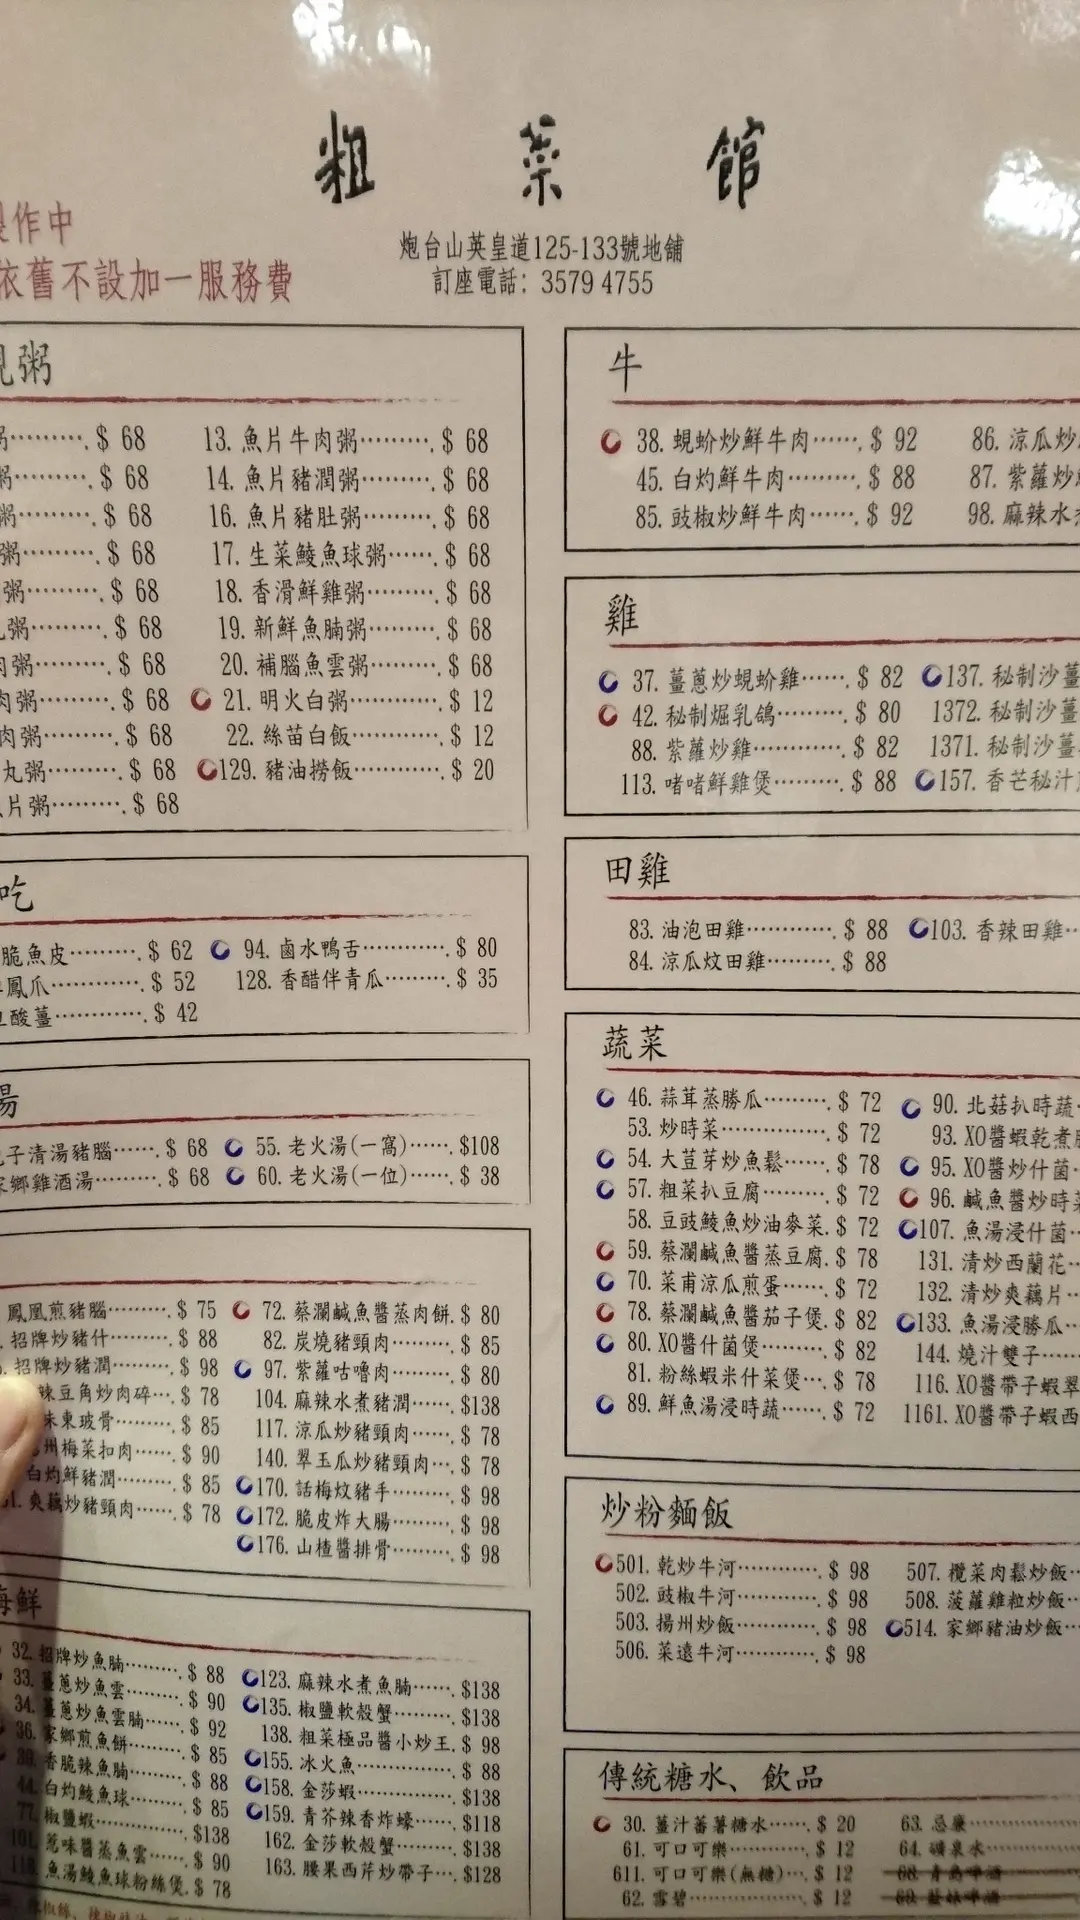 粗菜館
炮台山英皇道125-133號地舖
訂座電話: 3579 4755
製作中
依舊不設加一服務費
粥
粥………. $ 68
粥………. $ 68
粥………. $ 68
粥………. $ 68
粥………. $ 68
粥………. $ 68
肉粥………. $ 68
肉粥………. $ 68
肉粥………. $ 68
丸粥………. $ 68
片粥………. $ 68
13. 魚片牛肉粥………. $ 68
14. 魚片豬潤粥………. $ 68
16. 魚片豬肚粥………. $ 68
17. 生菜鯪魚球粥……. $ 68
18. 香滑鮮雞粥………. $ 68
19. 新鮮魚腩粥………. $ 68
20. 補腦魚雲粥………. $ 68
21. 明火白粥………. $ 12
22. 絲苗白飯…………. $ 12
129. 豬油撈飯…………. $ 20
吃
脆魚皮………. $ 62
鳳爪…………. $ 52
酸薑…………. $ 42
94. 鹵水鴨舌…………. $ 80
128. 香醋伴青瓜………. $ 35
湯
子清湯豬腦……. $ 68
家鄉雞酒湯………. $ 68
55. 老火湯(一窩)……. $108
60. 老火湯(一位)……. $ 38
鳳凰煎豬腦………. $ 75
招牌炒豬什………. $ 88
招牌炒豬潤………. $ 98
辣豆角炒肉碎…. $ 78
味東玻骨………. $ 85
州梅菜扣肉……. $ 90
白灼鮮豬潤………. $ 85
爽藕炒豬頸肉……. $ 78
72. 蔡瀾鹹魚醬蒸肉餅. $ 80
82. 炭燒豬頸肉………. $ 85
97. 紫蘿咕嚕肉………. $ 80
104. 麻辣水煮豬潤……. $138
117. 涼瓜炒豬頸肉……. $ 78
140. 翠玉瓜炒豬頸肉…. $ 78
170. 話梅炆豬手………. $ 98
172. 脆皮炸大腸………. $ 98
176. 山楂醬排骨………. $ 98
海鮮
32. 招牌炒魚腩………. $ 88
33. 薑蔥炒魚雲………. $ 90
34. 薑蔥炒魚雲腩……. $ 92
36. 家鄉煎魚餅………. $ 85
39. 香脆辣魚腩………. $ 88
44. 白灼鯪魚球………. $ 85
77. 椒鹽蝦…………. $138
101. 蔥味醬蒸魚雲……. $ 90
118. 魚湯鯪魚球粉絲煲. $ 78
123. 麻辣水煮魚腩……. $138
135. 椒鹽軟殼蟹………. $138
138. 粗菜極品醬小炒王. $ 98
155. 冰火魚……………. $ 88
158. 金莎蝦……………. $138
159. 青芥辣香炸蠔……. $118
162. 金莎軟殼蟹………. $138
163. 腰果西芹炒帶子…. $128
牛
38. 蜆蚧炒鮮牛肉……. $ 92
45. 白灼鮮牛肉………. $ 88
85. 豉椒炒鮮牛肉……. $ 92
86. 涼瓜炒
87. 紫蘿炒
98. 麻辣水
雞
37. 薑蔥炒蜆蚧雞……. $ 82
42. 秘制掘乳鴿………. $ 80
88. 紫蘿炒雞…………. $ 82
113. 啫啫鮮雞煲………. $ 88
137. 秘制沙薑
1372. 秘制沙薑
1371. 秘制沙薑
157. 香芒秘汁
田雞
83. 油泡田雞…………. $ 88
84. 涼瓜炆田雞………. $ 88
103. 香辣田雞…
蔬菜
46. 蒜茸蒸勝瓜………. $ 72
53. 炒時菜……………. $ 72
54. 大荳芽炒魚鬆……. $ 78
57. 粗菜扒豆腐………. $ 72
58. 豆豉鯪魚炒油麥菜. $ 72
59. 蔡瀾鹹魚醬蒸豆腐. $ 78
70. 菜甫涼瓜煎蛋……. $ 72
78. 蔡瀾鹹魚醬茄子煲. $ 82
80. XO醬什菌煲………. $ 82
81. 粉絲蝦米什菜煲…. $ 78
89. 鮮魚湯浸時蔬……. $ 72
90. 北菇扒時蔬…
93. XO醬蝦乾煮
95. XO醬炒什菌…
96. 鹹魚醬炒時菜
107. 魚湯浸什菌…
131. 清炒西蘭花…
132. 清炒爽藕片…
133. 魚湯浸勝瓜…
144. 燒汁雙子……
116. XO醬帶子蝦翠
1161. XO醬帶子蝦西
炒粉麵飯
501. 乾炒牛河…………. $ 98
502. 豉椒牛河…………. $ 98
503. 揚州炒飯…………. $ 98
506. 菜遠牛河…………. $ 98
507. 欖菜肉鬆炒飯…
508. 菠蘿雞粒炒飯…
514. 家鄉豬油炒飯…
傳統糖水、飲品
30. 薑汁蕃薯糖水……. $ 20
61. 可口可樂…………. $ 12
611. 可口可樂(無糖)…. $ 12
62. 雪碧………………. $ 12
63. 忌廉…………
64. 礦泉水………
68. 青島啤酒
69. 藍妹啤酒